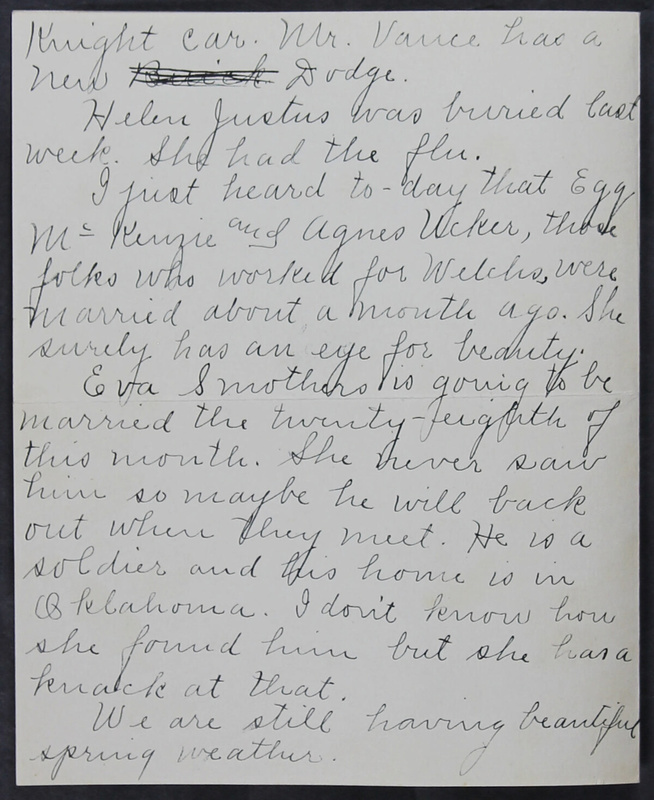 Knight car. Mr. Vance has a
new Buick Dodge.
Helen Justus was buried last
week. She had the flu.
I just heard to-day that Egg
Mc Kenzie and Agnes Ucker, those
folks who worked for Welchs, were
married about a month ago. She
surely has an eye for beauty.
Eva Smothers is going to be
married the twenty-eighth of
this month. She never saw
him so maybe he will back
out when they meet. He is a
soldier and his home is in
Oklahoma. I don't know how
she found him but she has a
knack at that.
We are still having beautiful
spring weather.